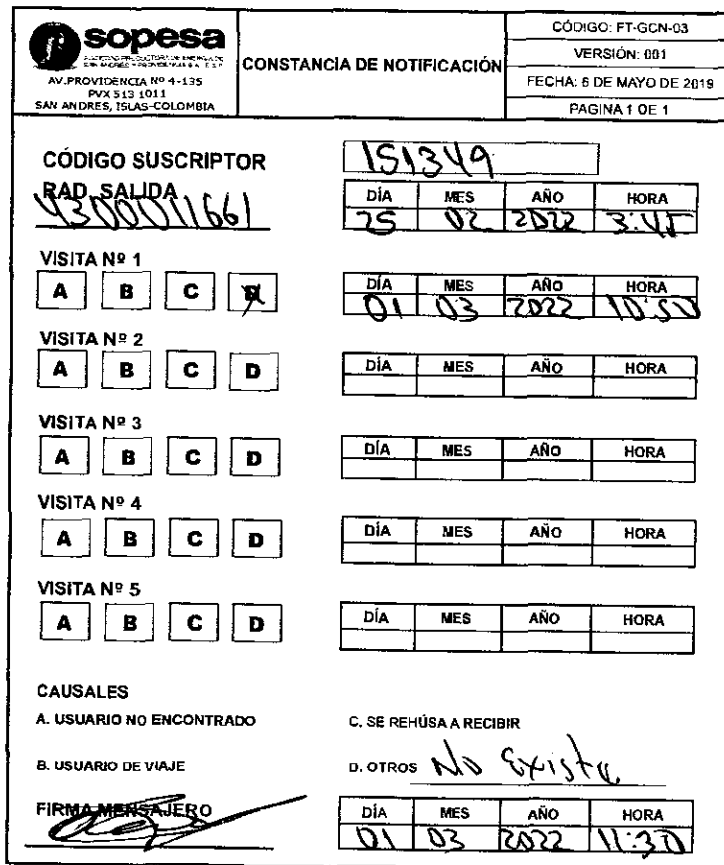 sopesa
AV.PROVIDENCIA Nº 4-135
PVX 513 1011
SAN ANDRES, ISLAS-COLOMBIA
CONSTANCIA DE NOTIFICACIÓN
CÓDIGO: FT-GCN-03
VERSIÓN: 001
FECHA: 6 DE MAYO DE 2019
PAGINA 1 DE 1
CÓDIGO SUSCRIPTOR 151349
RAD. SALIDA
4300011661
DÍA MES AÑO HORA
25 02 2022 3:45
VISITA Nº 1
A B C D
DÍA MES AÑO HORA
01 03 2022 10:50
VISITA Nº 2
A B C D
DÍA MES AÑO HORA
VISITA Nº 3
A B C D
DÍA MES AÑO HORA
VISITA Nº 4
A B C D
DÍA MES AÑO HORA
VISITA Nº 5
A B C D
DÍA MES AÑO HORA
CAUSALES
A. USUARIO NO ENCONTRADO C. SE REHÚSA A RECIBIR
B. USUARIO DE VIAJE D. OTROS No Existe
FIRMA MENSAJERO
DÍA MES AÑO HORA
01 03 2022 11:30